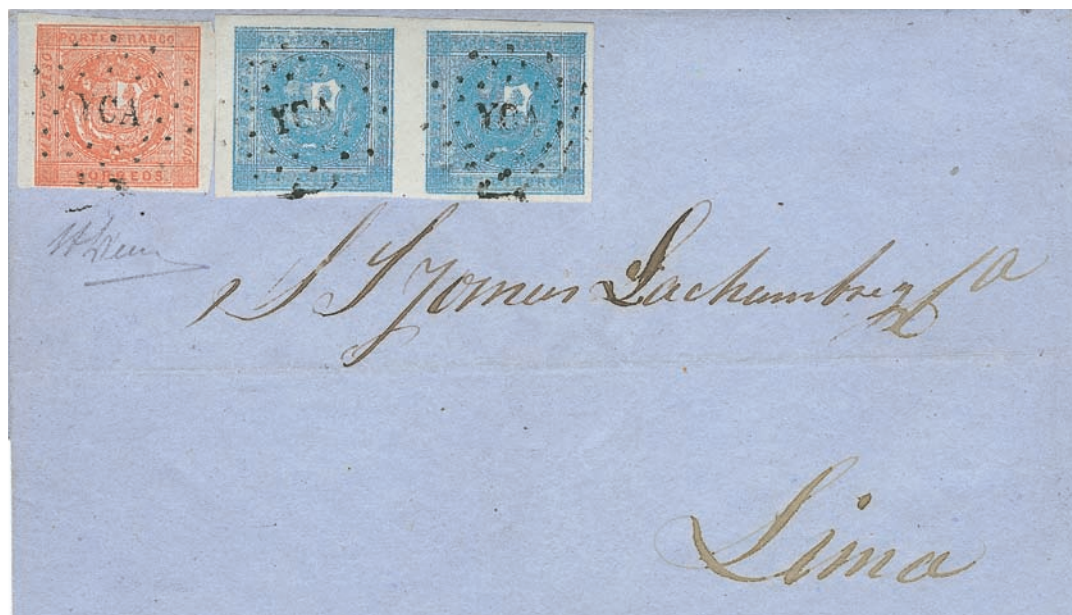 PORTE FRANCO
CORREOS
YCA
YCA
YCA
S S Tomas Lachambre y Ca
Lima